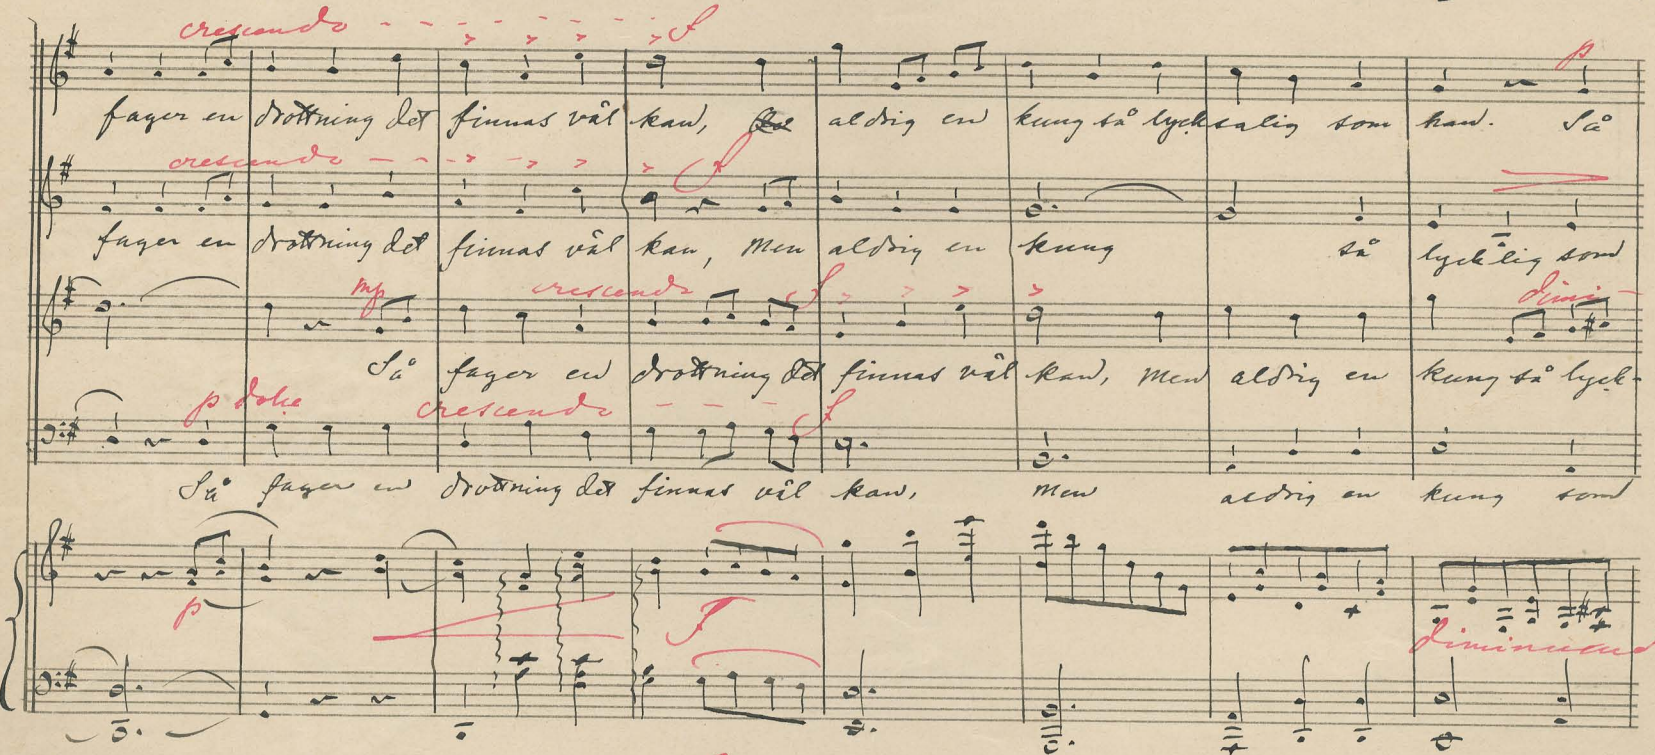 crescendo f p
fager en drottning det finnas väl kan, aldrig en kung så lycksalig som han. Så
crescendo f
fager en drottning det finnas väl kan, Men aldrig en kung så lycklig som
mp crescendo f dimi-
Så fager en drottning det finnas väl kan, Men aldrig en kung så lyck-
p dolce crescendo f
Så fager en drottning det finnas väl kan, Men aldrig en kung som
p f
diminuend